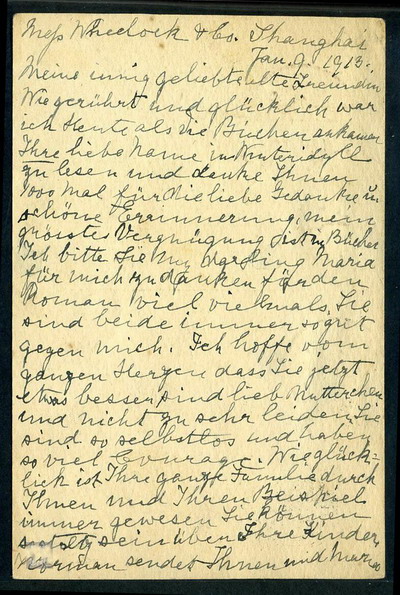 Mess Wheelock & Co. Shanghai
Jan. 9. 1913.
Meine innig geliebte alte Freundin
Wie gerührt und glücklich war
ich Heute als die Bücher ankamen
Ihre liebe Name in Winteridyll
zu lesen und danke Ihnen
1000 Mal für die liebe Gedanke u
schöne Errinnerung, mein
grösstes Vergnügung ist Bücher
Ich bitte Sie my darling Maria
für mich zu danken für den
Roman viel vielmals, Sie
sind beide immer so gut
gegen mich. Ich hoffe vom
ganzen Herzen dass Sie jetzt
etwas besser sind lieb Mutterchen
und nicht zu sehr leiden, Sie
sind so selbstlos und haben
so viel Courage. Wie glück=
lich ist Ihre ganze Familie durch
Ihnen und Ihren Beispiel
immer gewesen Sie können
stolz sein über Ihre Kinder,
Norman sendet Ihnen und Maria